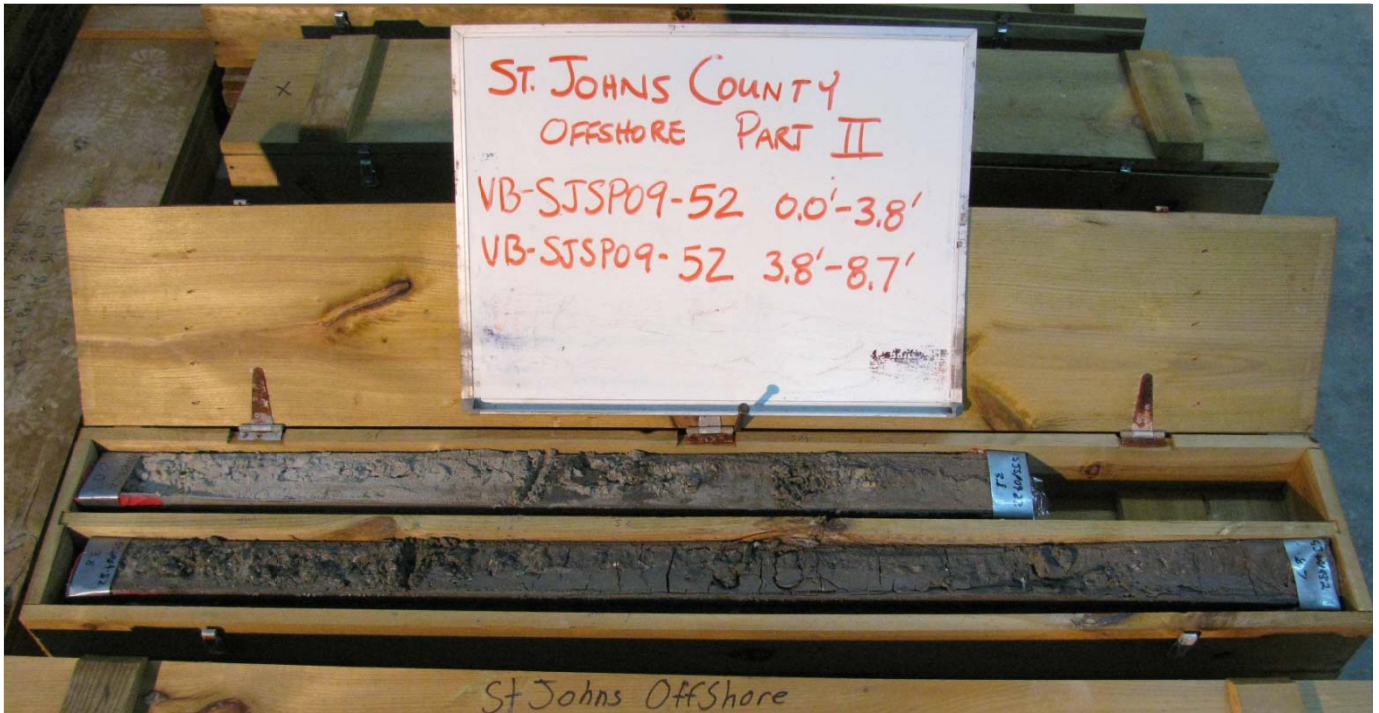 ST. JOHNS COUNTY
OFFSHORE PART II
VB-SJSP09-52 0.0'-3.8'
VB-SJSP09-52 3.8'-8.7'
St Johns OffShore